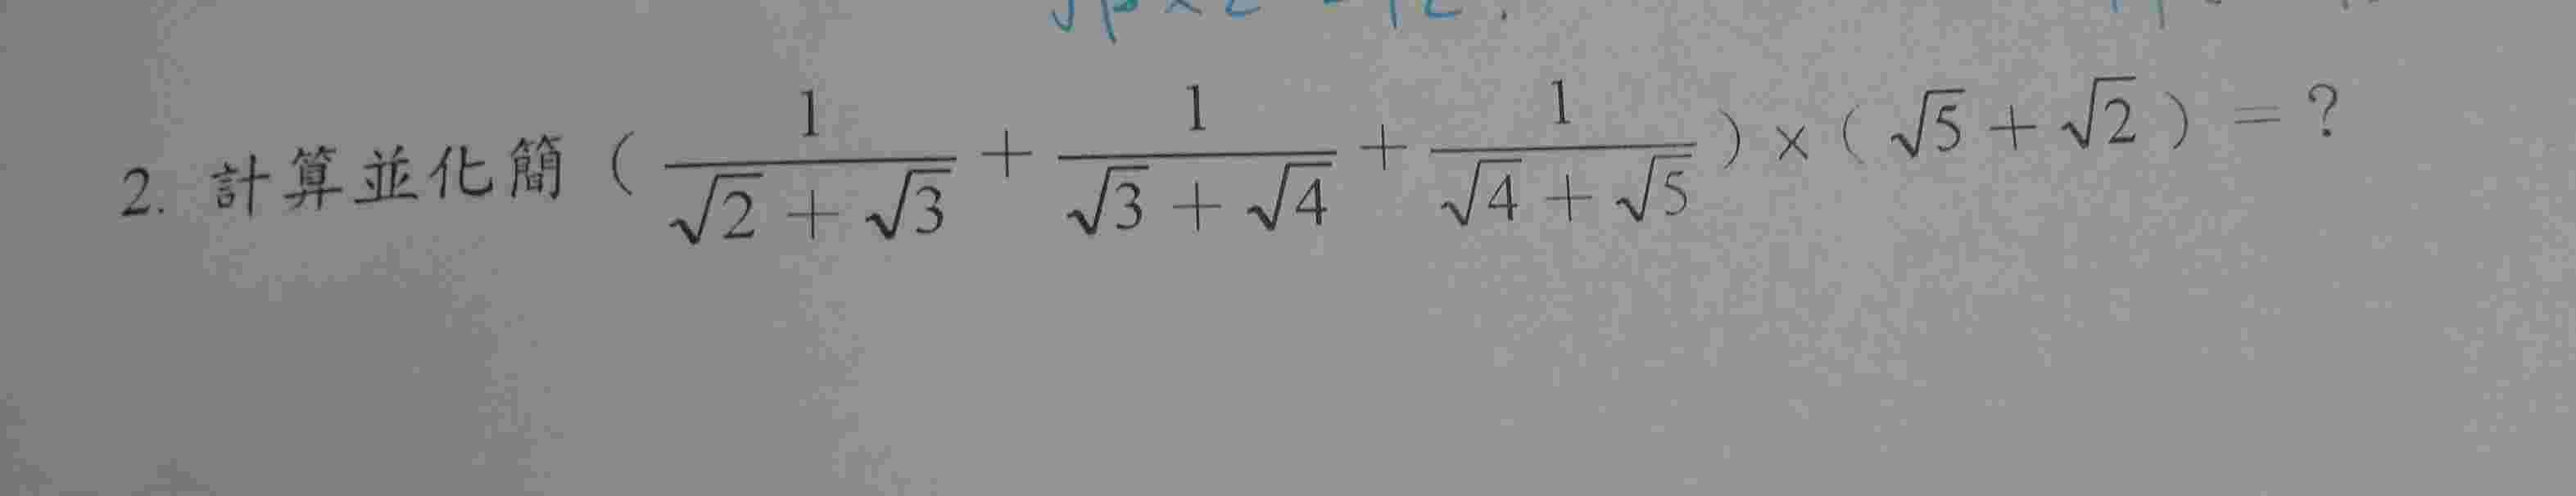 2. 計算並化簡（\frac{1}{\sqrt{2}+\sqrt{3}}+\frac{1}{\sqrt{3}+\sqrt{4}}+\frac{1}{\sqrt{4}+\sqrt{5}}）×（\sqrt{5}+\sqrt{2}）=？